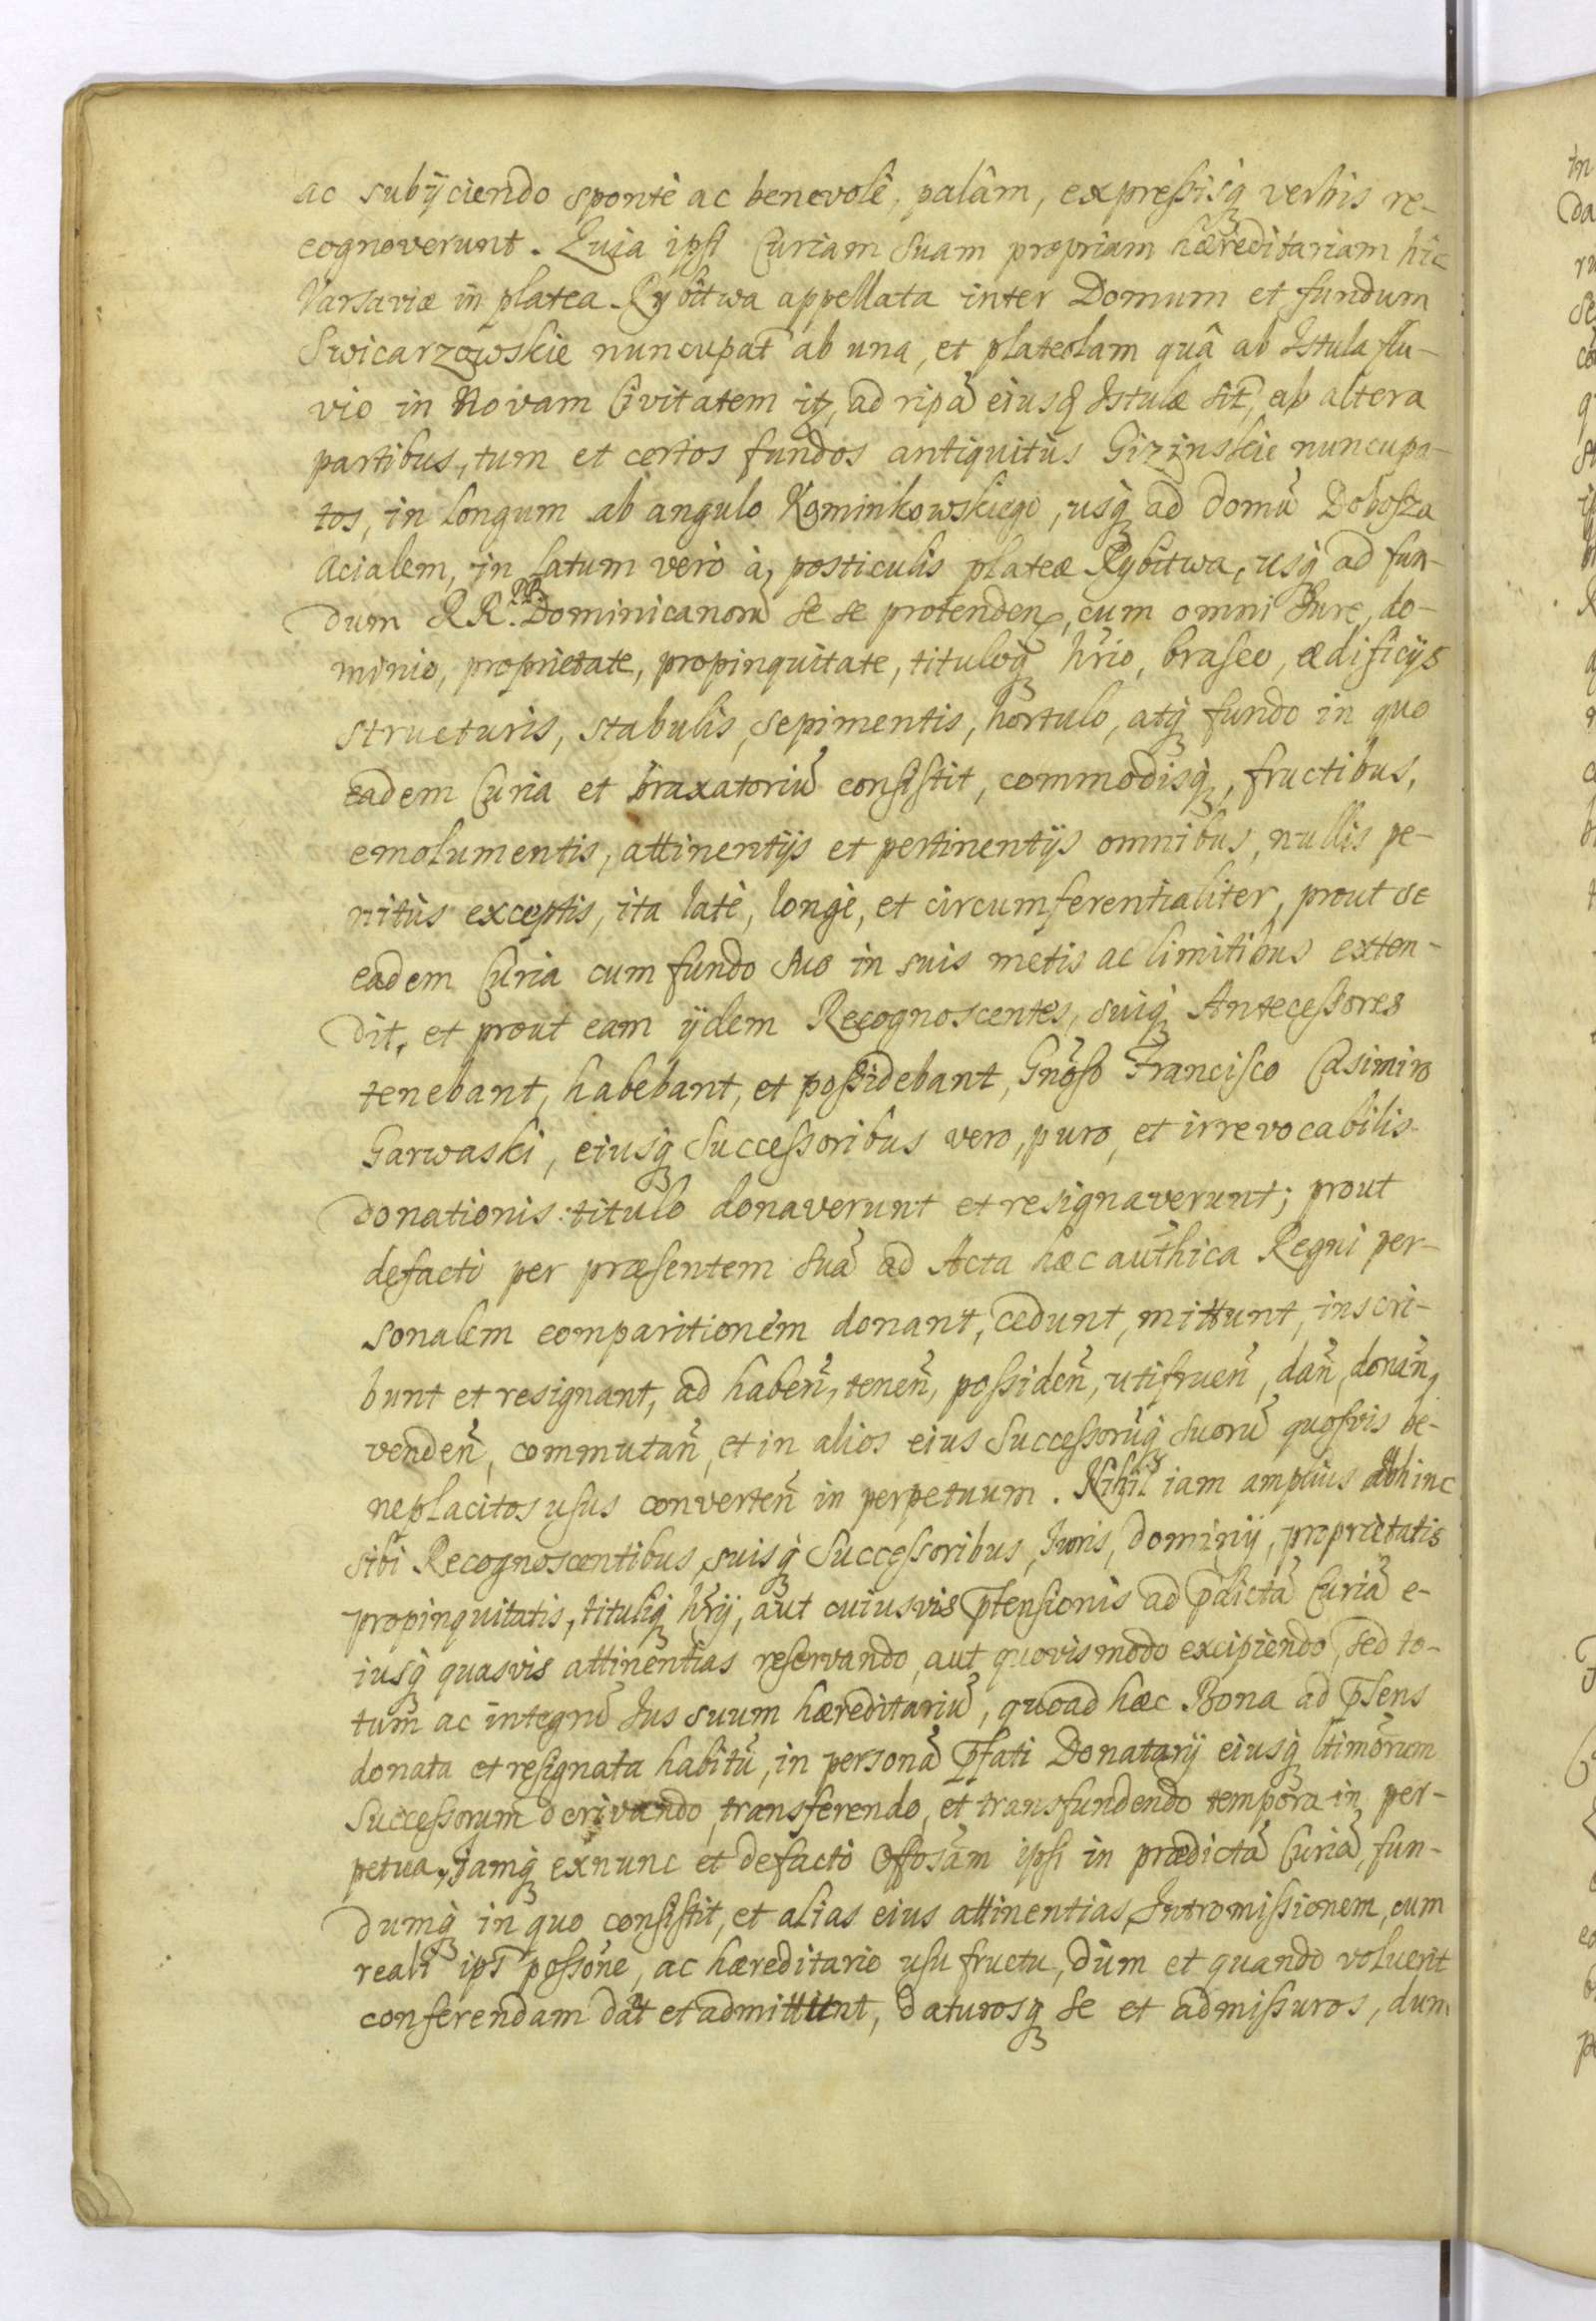 ac subÿciendo spontè ac benevolè, palâm, expressisq₃ verbis re-
cognoverunt. Quia ipsi Curiam suam propriam hæreditariam hic
Varsaviæ in platea Rybitwa appellata inter Domum et fundum
Swicarzowskie nuncupat̃ ab una, et plateolam quâ ab Istula flu-
vio in Novam Civitatem it̃, ad ripã eiusq₃ Istulæ sit̃, ab altera
partibus, tum et certos fundos antiquitùs Gizinskie nuncupa-
tos, in longum ab angulo Kominkowskiego, usq₃ ad domũ Dobosza
acialem, in latum verò à, posticulis plateæ Rybitwa, usq₃ ad fun-
dum RR. PP. Dominicanorũ se se protenden̄, cum omni Jure, do-
minio, proprietate, propinquitate, tituloq₃ hr̃io, braseo, ædificÿs
structuris, stabulis, sepimentis, hortulo, atq₃ fundo in quo
eadem Curia et braxatoriũ consistit, commodisq₃, fructibus,
emolumentis, attinentÿs et pertinentÿs omnibus, nullis pe-
nitùs exceptis, ita latè, longè, et circumferentialiter, prout se
eadem Curia cum fundo suo in suis metis ac limitibus exten-
dit, et prout eam ÿdem Recognoscentes, suiq₃ Antecessores
tenebant, habebant, et possidebant, Gñoso Francisco Casimiro
Garwaski, eiusq₃ Successoribus vero, puro, et irrevocabilis
donationis titulo donaverunt et resignaverunt; prout
defacto per præsentem suã ad Acta hæc aut̃hica Regni per-
sonalem comparitionem donant, cedunt, mittunt, inscri-
bunt et resignant, ad habeñ, teneñ, possideñ, utifrueñ, dañ, donañ,
vendeñ, commutañ, et in alios eius Successorũq₃ suorũ quosvis be-
neplacitos usus converteñ in perpetuum. Nihil iam amplius abhinc
sibi Recognoscentibus, suisq₃ Successoribus, Juris, dominÿ, proprietatis
propinquitatis, tituliq₃ hr̃ÿ, aut cuiusvis p̃tensionis ad p̃dictã Curiã e-
iusq₃ quasvis attinentias reservando, aut quovismodo excipiendo, sed to-
tum ac integrũ Jus suum hæreditariũ, quoad hæc Bona ad p̃sens
donata et resignata habitũ, in personã p̃fati Donatarÿ eiusq₃ ltimõrum
Successorum derivando, transferendo, et transfundendo tempora in per-
petua, Jamq₃ exnunc et defacto Offosãm ipsi in prædictã Curiã, fun-
dumq₃ in quo consistit, et alias eius attinentias, Intromissionem, cum
reali ips̃ possõne, ac hæreditario usufructu, dum et quando voluerit
conferendam dãt et admittunt, daturosq₃ se et admissuros, dum